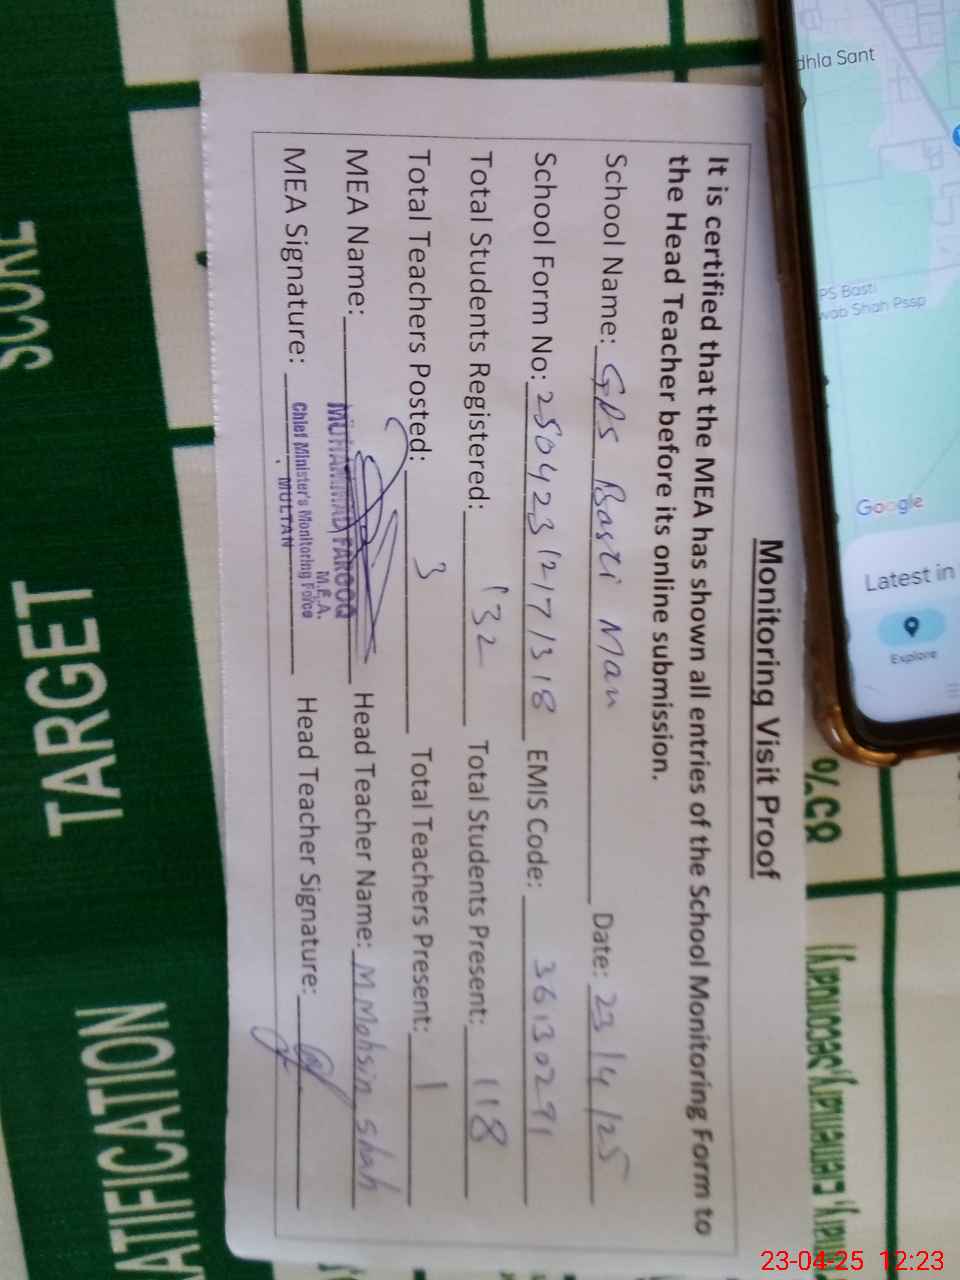 Monitoring Visit Proof
It is certified that the MEA has shown all entries of the School Monitoring Form to
the Head Teacher before its online submission.
School Name: GPS Basti Man Date: 23/4/25
School Form No: 250423121771318 EMIS Code: 36130291
Total Students Registered: 132 Total Students Present: 118
Total Teachers Posted: 3 Total Teachers Present: 1
MEA Name: MUHAMMAD FAROOQ Head Teacher Name: M Mohsin Shah
M.E.A.
MEA Signature: Head Teacher Signature:
Chief Minister's Monitoring Force
MULTAN
dhla Sant
PS Basti
wab Shah Pssp
Google
Latest in
Explore
85%
TARGET
23-04-25 12:23